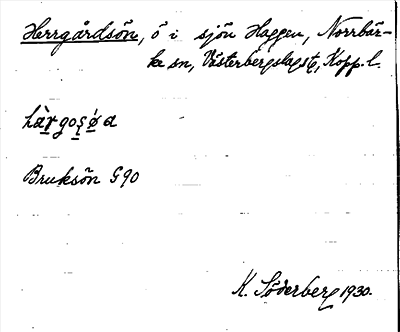 Herrgårdsön, ö i sjön Haggen, Norrbär-
ke sn, Västerbergslags t, Kopp. l.
hàrgoșø̀ a
Bruksön G 90
K. Söderberg 1930.